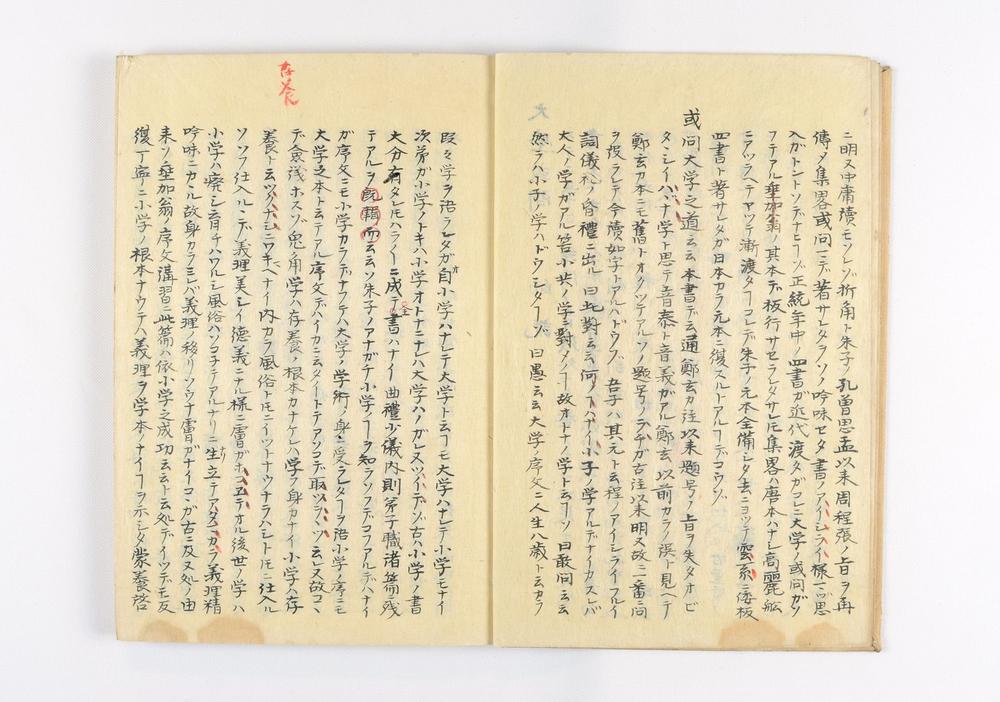 ニ明又中庸續モソレゾ折角ト朱子ノ孔曽思孟以来周程張ノ旨ヲ再
傳メ集畧或問ニデ著サレタラソノ吟味セタ書ノアイシライ様ニゾ思
入ガトントソデナヒーゾ正統年中ノ四書ガ近代渡タガコレニ大学ノ或問ガソ
フテアル垂加翁ノ其本デ板行サセラレタサレ𪜈集畧ハ唐本ハナシ高麗舩
ニアツラヘテヤツテ漸渡タコレデ朱子ノ元本全備シタ去ニヨツテ雲系ニ倭板
四書ト著サレタガ日本カラ元本ニ復スルトアルヿデコウゾ
或問大学之道云云本書デ云通鄭玄ガ注以来題号ノ旨ヲ失タオビ
タヽシイハバナ学ト思テ音泰ト音義ガアル鄭玄以前カラノ誤ト見ヘテ
鄭玄カ本ニモ舊トオクツテアルソノ題号ノラチガ古注以来明又故ニ一番ニ問
ヲ投ラレテ今續如字トアルハドウゾ 吾子ハ其元ト云程ノアイシライフルイ
詞儀礼ノ昏禮ニ出ル 曰此對云云何ノヿハナイ小子ノ学アルデナイカスレバ
大人ノ学ガアル筈小共ノ学ニ對メノヿ故オトナノ学ト云ヿソ 曰敢問云云
然ラハ小子ノ学ハドウシタヿゾ 曰愚云云大学ノ序文ニ人生八歳ト云カラ
存養
段々学ヲ語ラレタガ自小学ハナレテ大学ト云ヿモ大学ハナレテ小学モナイ
次第ガ小学ノトキハ小学オトナニナレハ大学ハノガレヌツイデゾ古ハ小学ノ書
大分有タレ𪜈ハラノヿニ成テ全書ハナイ 曲禮少儀内則弟子職諸篇ニ残
テアルヲ既輯而云云ソ朱子ノアナガテ小学ノヿヲ知ラソフデコフアルデハナイ
ガ序文ニモ小学カラデナフテハ大学ノ学術ノ身ニ受ラレタヿヲ語小学ノ序ニモ
大学之本ト云テアル序文デハイカニ云タイートテアソコデ取ツラヘヾソ云レヌ故コヽ
デ念浅ホスゾ兎角学ハ存養ノ根本カナケレハ学ノ身カナイ小学ハ存
養ト云ツクナシニワキヘナイ内カラ風俗ト𪜈ニイツトナウナラハシト𪜈ニ仕入ル
ソソフ仕入ルヽデ義理美シイ德義ニナル様ニ雷ガホコ立テオル後世ノ学ハ
小学ハ廃シ育チハワルシ風俗ハソコチテアルナリニ生立テアタニカラ義理精
吟味ニカヽル故身カラミレバ義理ノ移リソウナ雷ガナイコヽガ古ニ及又処ノ由
来ソ垂加翁ノ序文講習ニ此篇ハ依小学之成功云云ト云処デイツデモ反
復丁寧ニ小学ノ根本ナウテハ義理ヲ学本ノナイヿヲ示シタ蒙養啓